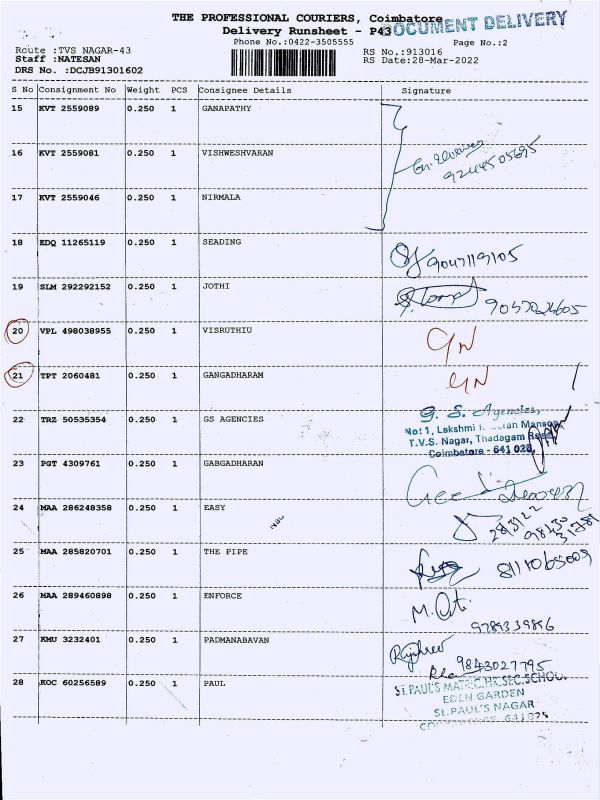 THE PROFESSIONAL COURIERS, Coimbatore
DOCUMENT DELIVERY
Delivery Runsheet - P43
Phone No.:0422-3505555
Page No.:2
Route :TVS NAGAR-43
RS No.:913016
Staff :NATESAN
RS Date:28-Mar-2022
DRS No. :DCJB91301602
S No Consignment No Weight PCS Consignee Details Signature
15 KVT 2559089 0.250 1 GANAPATHY
16 KVT 2559081 0.250 1 VISHWESHVARAN
9244505695
17 KVT 2559046 0.250 1 NIRMALA
18 EDQ 11265119 0.250 1 SEADING
9047119105
19 SLM 292292152 0.250 1 JOTHI
20 VPL 498038955 0.250 1 VISRUTHIU
21 TPT 2060481 0.250 1 GANGADHARAM
22 TRZ 50535354 0.250 1 GS AGENCIES
G. S. Agencies,
No: 1, Lakshmi Mansion
T.V.S. Nagar, Thadagam Road,
Coimbatore - 641 025.
23 PGT 4309761 0.250 1 GABGADHARAN
24 MAA 286248358 0.250 1 EASY
28/3/22
25 MAA 285820701 0.250 1 THE PIPE
8111065009
26 MAA 289460898 0.250 1 ENFORCE
9789339896
27 KMU 3232401 0.250 1 PADMANABAVAN
9843027795
28 KOC 60256589 0.250 1 PAUL
St. PAUL'S MATRIC.HR.SEC.SCHOOL
EDEN GARDEN
St. PAUL'S NAGAR
COIMBATORE 641025